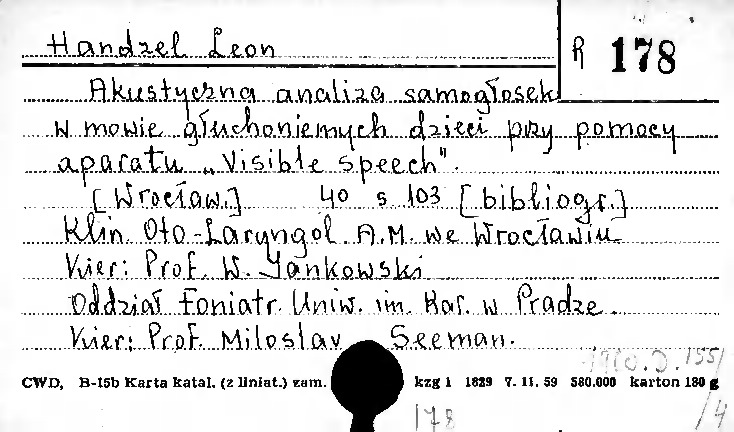 Handzel Leon
R 178
Akustyczna analiza samogłosek
w mowie głuchoniemych dzieci przy pomocy
aparatu „Visible speech".
[Wrocław.] 40 s 103 [bibliogr.]
Klin. Oto-Laryngol. A.M. we Wrocławiu
Kier: Prof. W. Jankowski
Oddział Foniatr. Uniw. im. Kar. w Pradze.
Kier: Prof. Miloslav Seeman.
CWD, B-15b Karta katal. (z liniat.) zam. kzg 1 1829 7. 11. 59 580.000 karton 180 g
178 /4